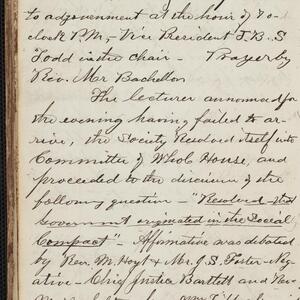 to adjournment at the hour of 7 o-
clock P.M., Vice President J.B.S
Todd in the chair - Prayer by
Rev. Mr Bachellor
The lecturer announced for
the evening having failed to ar-
rive, the Society Resolved itself into
Committee of Whole House, and
proceeded to the discussion of the
following question - "Resolved that
Government originated in the Social
Compact" - Affirmative was debated
by Rev. M. Hoyt & Mr. J.S. Foster - Neg-
ative - Chief Justice Bartlett and Rev